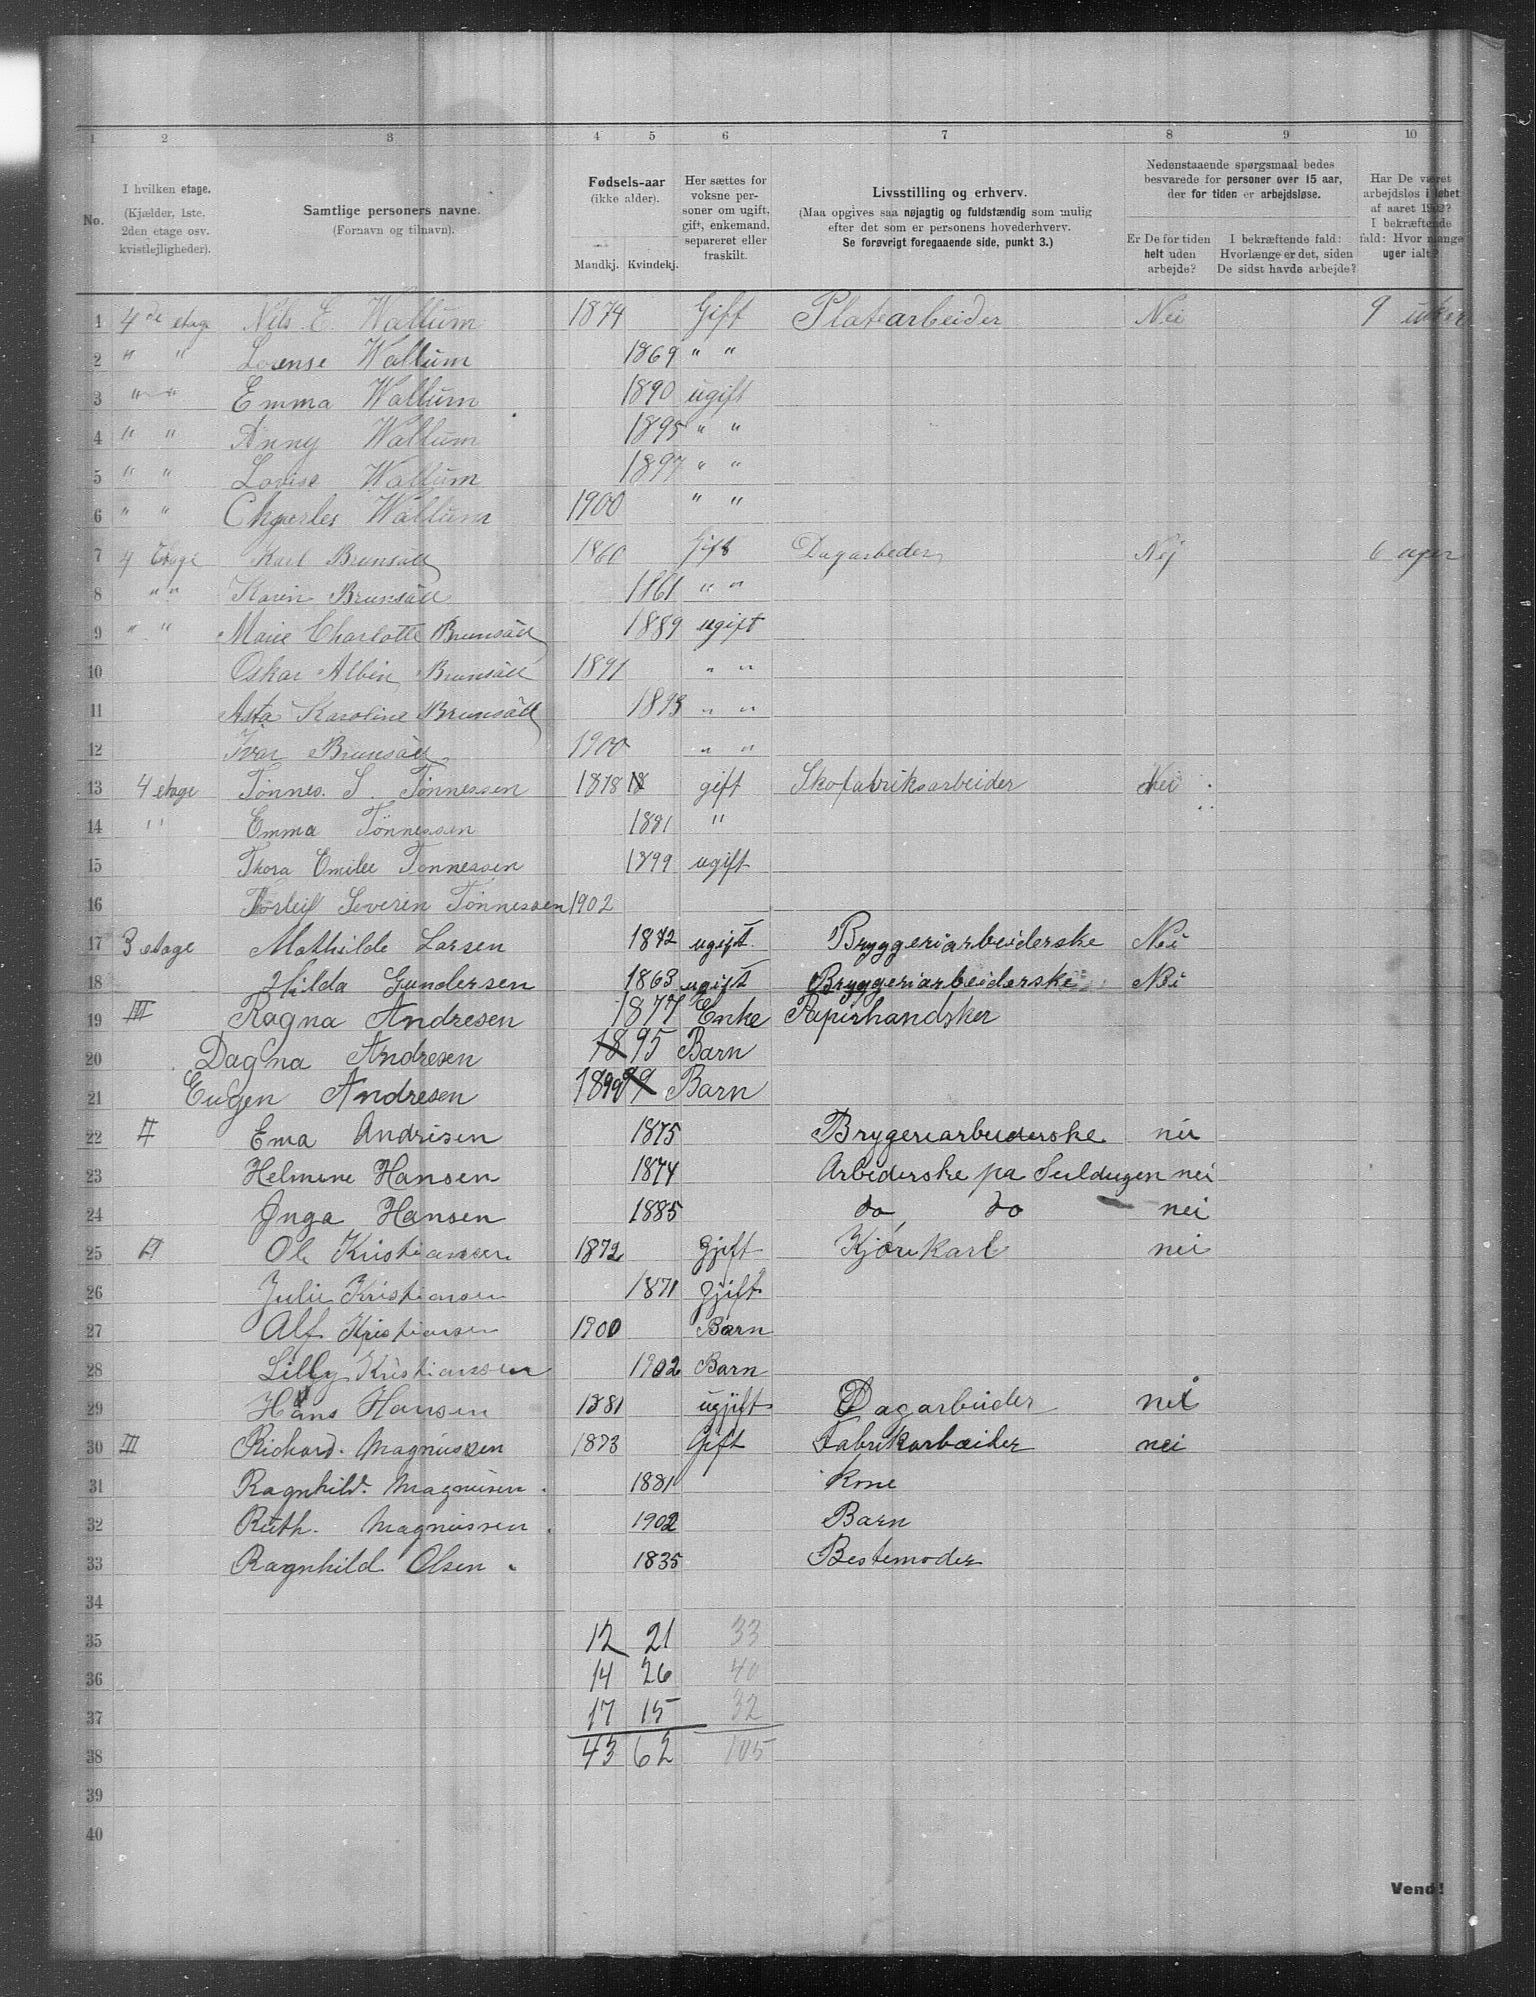 1 2 3 4 5 6 7 8 9 10
No. I hvilken etage. (Kjælder, 1ste, 2den etage osv. kvistlejligheder). Samtlige personers navne. (Fornavn og tilnavn). Fødsels-aar (ikke alder). Mandkj. Kvindekj. Her sættes for voksne personer om ugift, gift, enkemand, separeret eller fraskilt. Livsstilling og erhverv. (Maa opgives saa nøjagtig og fuldstændig som mulig efter det som er personens hovederhverv. Se forøvrigt foregaaende side, punkt 3.) Nedenstaaende spørgsmaal bedes besvarede for personer over 15 aar, der for tiden er arbejdsløse. Er De for tiden helt uden arbejde? I bekræftende fald: Hvorlænge er det, siden De sidst havde arbejde? Har De været arbejdsløs i løbet af aaret 1902? I bekræftende fald: Hvor mange uger ialt?
1 4de etage Nils E. Wallum 1874 Gift Platearbeider Nei 9 uker
2 " " Lovense Wallum 1869 " "
3 " " Emma Wallum 1890 ugift
4 " " Anny Wallum 1895 " "
5 " " Lovise Wallum 1897 " "
6 " " Charles Wallum 1900 " "
7 4 Etage Karl Brunsäll 1860 Gift Dagarbeder Nej 6 uger
8 " " Karin Brunsäll 1861 " "
9 " " Marie Charlotte Brunsäll 1889 ugift
10 Oskar Albin Brunsäll 1891 " "
11 Asta Karoline Brunsäll 1893 " "
12 Ivar Brunsäll 1900 " "
13 4 etage Tönnes. S. Tönnessen 1878 18 gift Skofabriksarbeider Nei
14 " Emma Tönnessen 1881 "
15 Thora Emilie Tonnessen 1899 ugift
16 Thorleif Severin Tönnessen 1902
17 3 etage Mathilde Larsen 1872 ugift. Bryggeriarbeiderske Nei
18 Hilda Gundersen 1863 ugift Bryggeriarbeiderske Nei
19 III Ragna Andresen 1877 Enke Papirhandsker
20 Dagna Andresen 1895 Barn
21 Eugen Andresen 1899 Barn
22 II Ema Andrisen 1875 Brygeriarbeiderske nei
23 Helmine Hansen 1874 Arbederske pa Seildugen nei
24 Inga Hansen 1885 do do nei
25 II Ole Kristiansen 1872 Gjift Kjørekarl nei
26 Julie Kristiansen 1871 gjift
27 Alf Kristiansen 1900 Barn
28 Lilly Kristianssen 1902 Barn
29 Hans Hansen 1881 ugjift Dagarbeider nei
30 III Richard. Magnussen 1873 Gift Fabrikarbeider nei
31 Ragnhild. Magnusen. 1881 kone
32 Ruth. Magnussen. 1902 Barn
33 Ragnhild Olsen. 1835 Bestemoder
34
35 12 21 33
36 14 26 40
37 17 15 32
38 43 62 105
39
40
Vend!